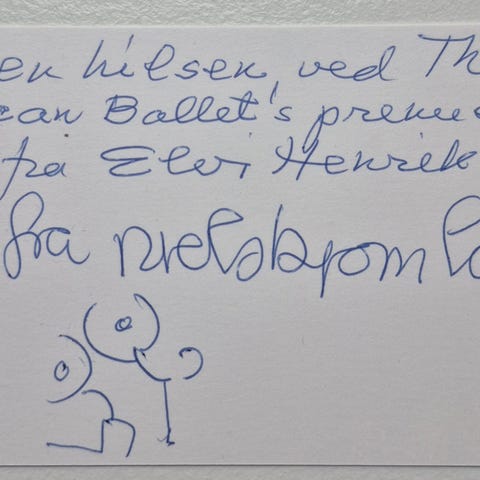 en hilsen, ved Th
can Ballet's premie
fra Elvi Henrik
fra nielsbjørn la